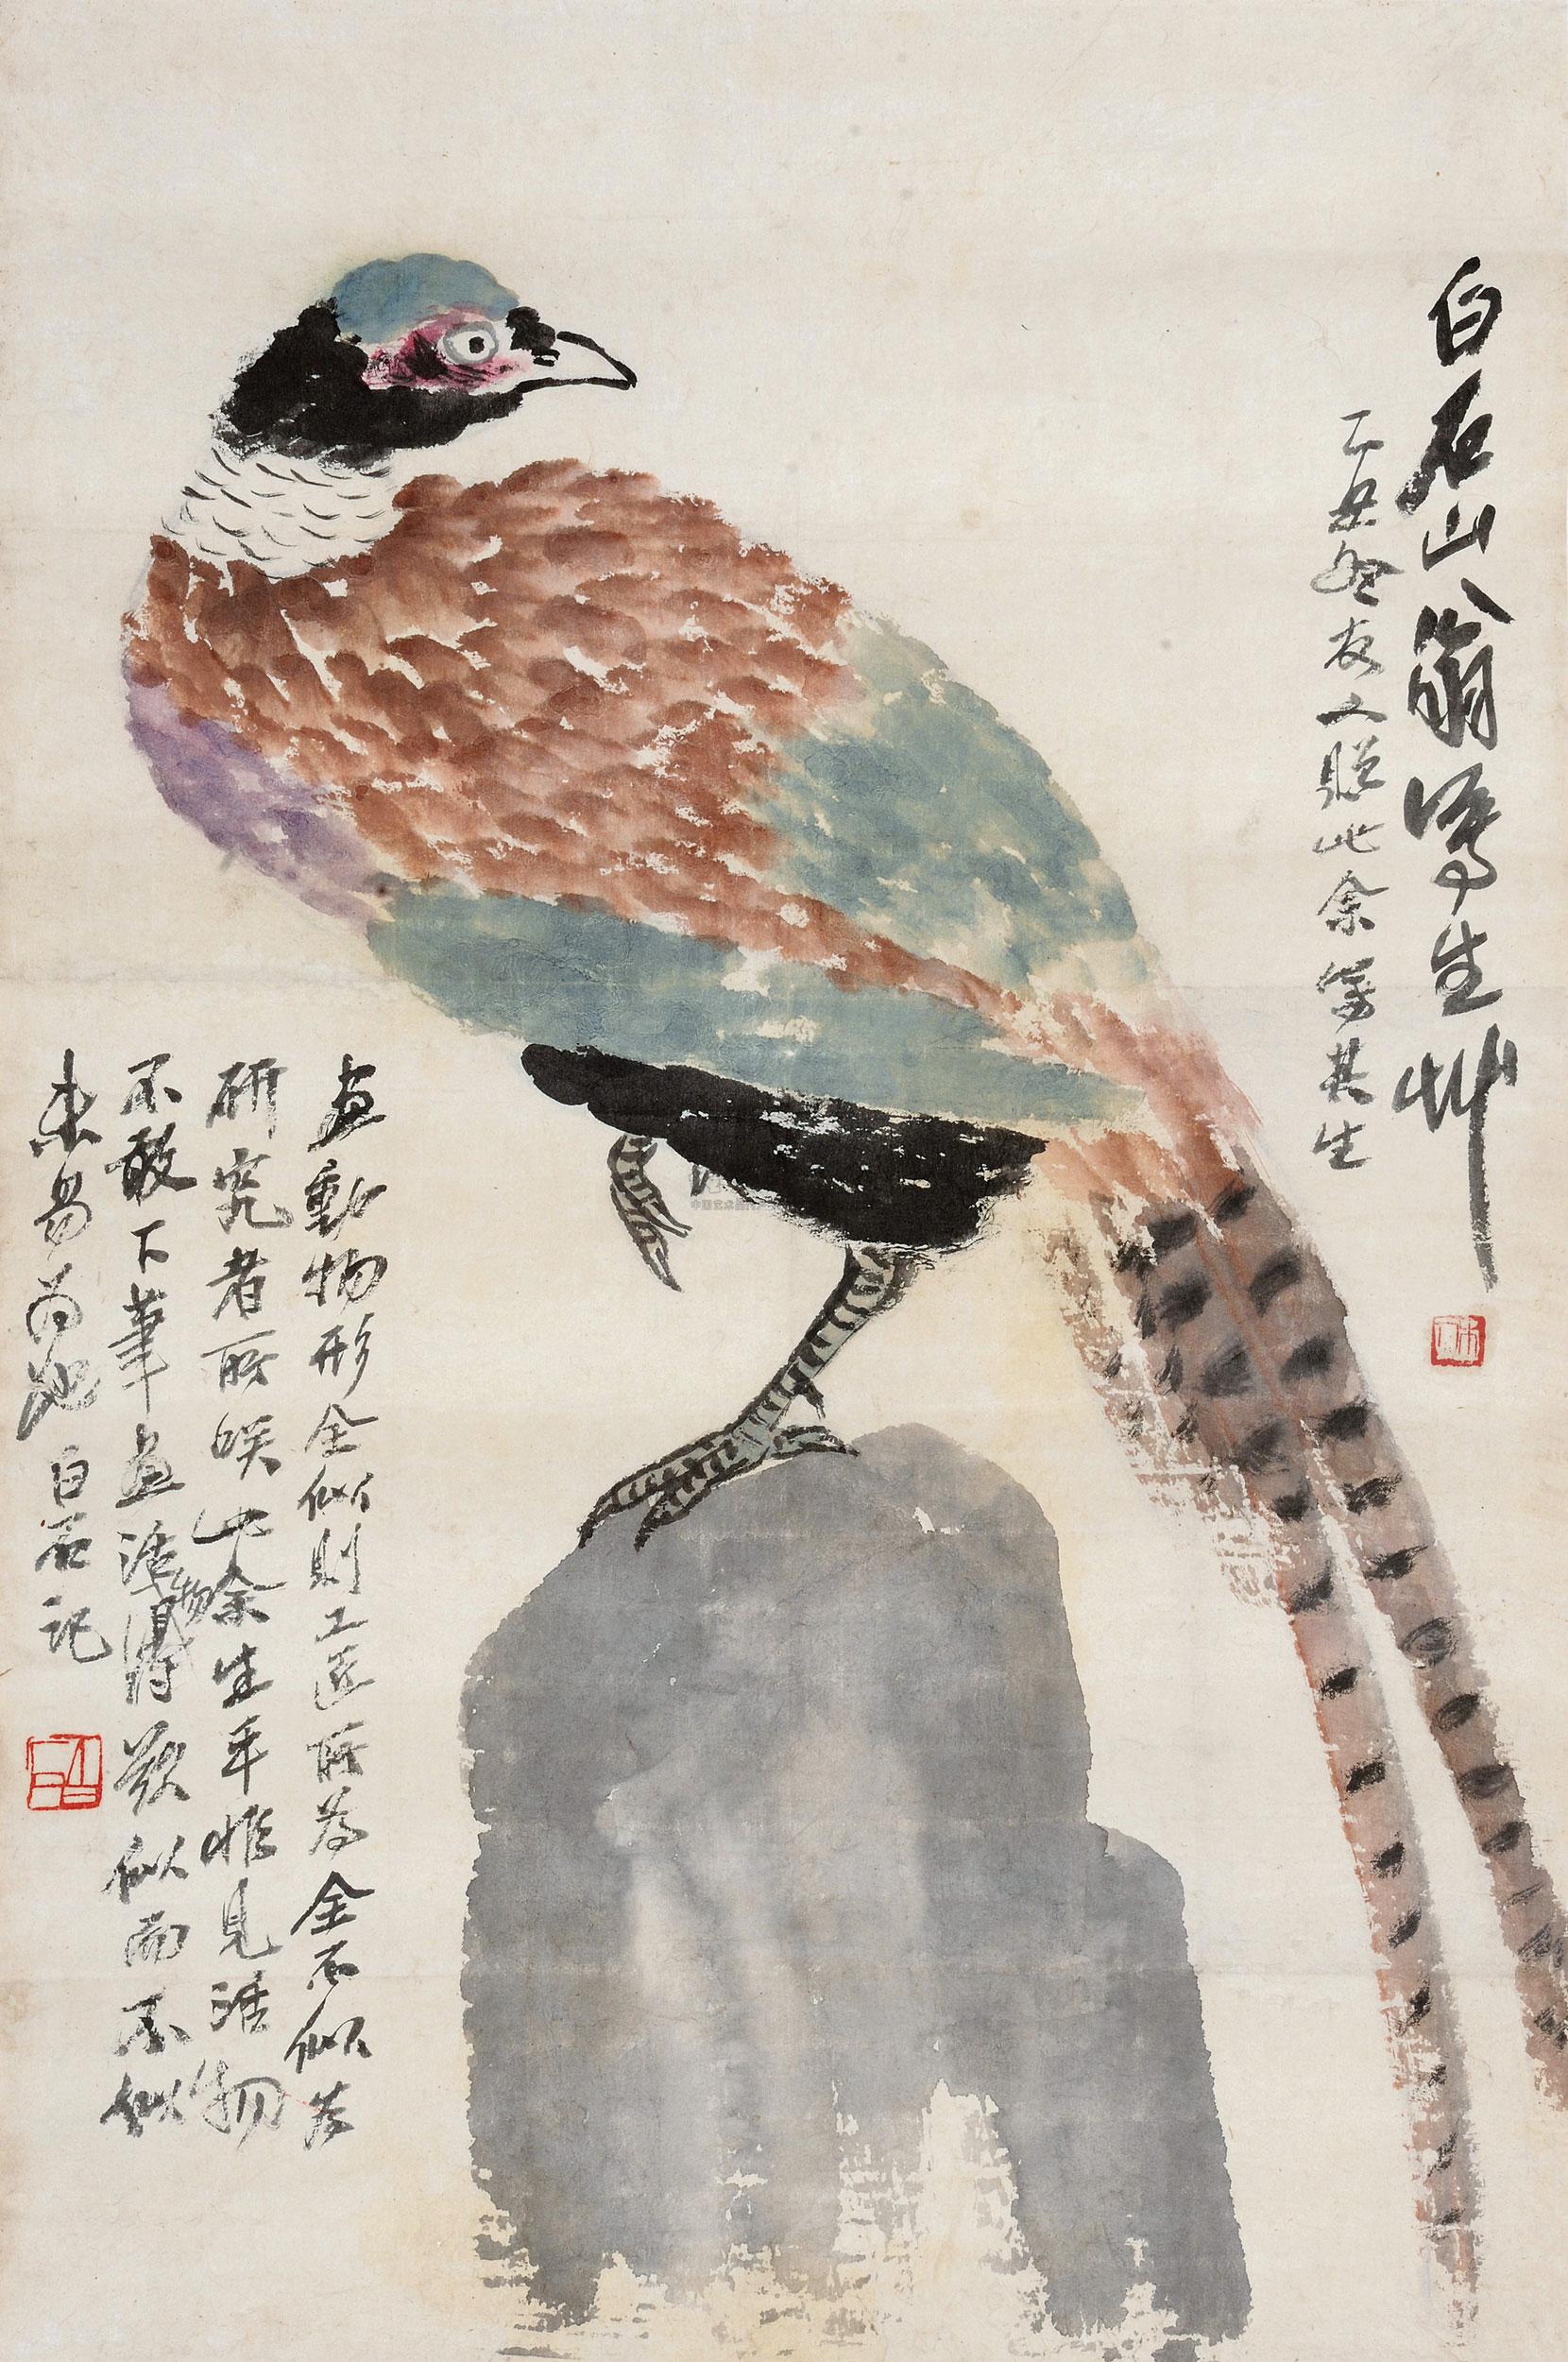 白石山翁寫生艸
乙丑冬友人贈此余寫其生
畫動物形全似則工匠所為全不似為
研究者所咲此余生平惟見活物
不敢下筆畫活物得欲似而不似
未易為也白石記